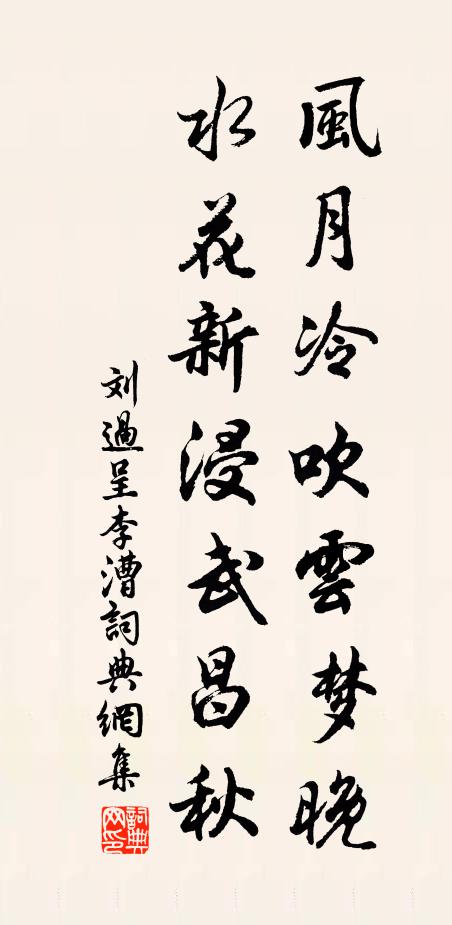 風月冷吹雲梦晚
水花新浸武昌秋
刘過呈李漕詞典網集
詞典网印